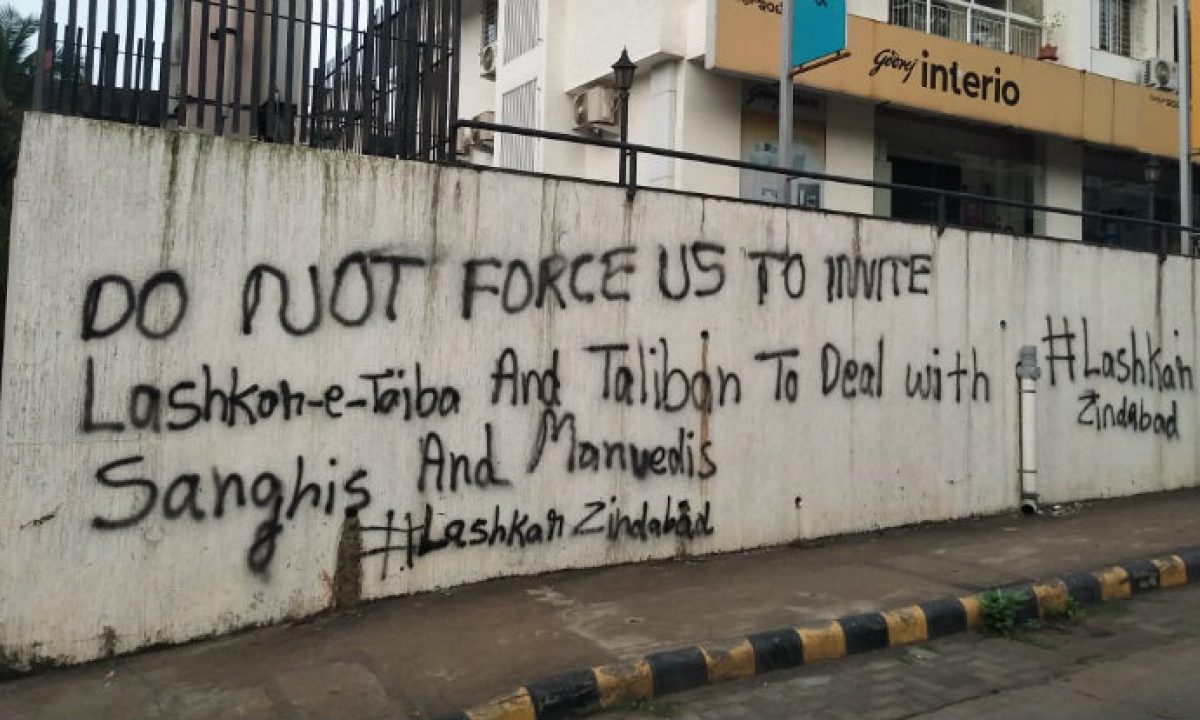 Godrej interio
DO NOT FORCE US TO INVITE
Lashkar-e-Taiba And Taliban To Deal with
Sanghis And Manvedis
#Lashkar Zindabad
#Lashkar
Zindabad